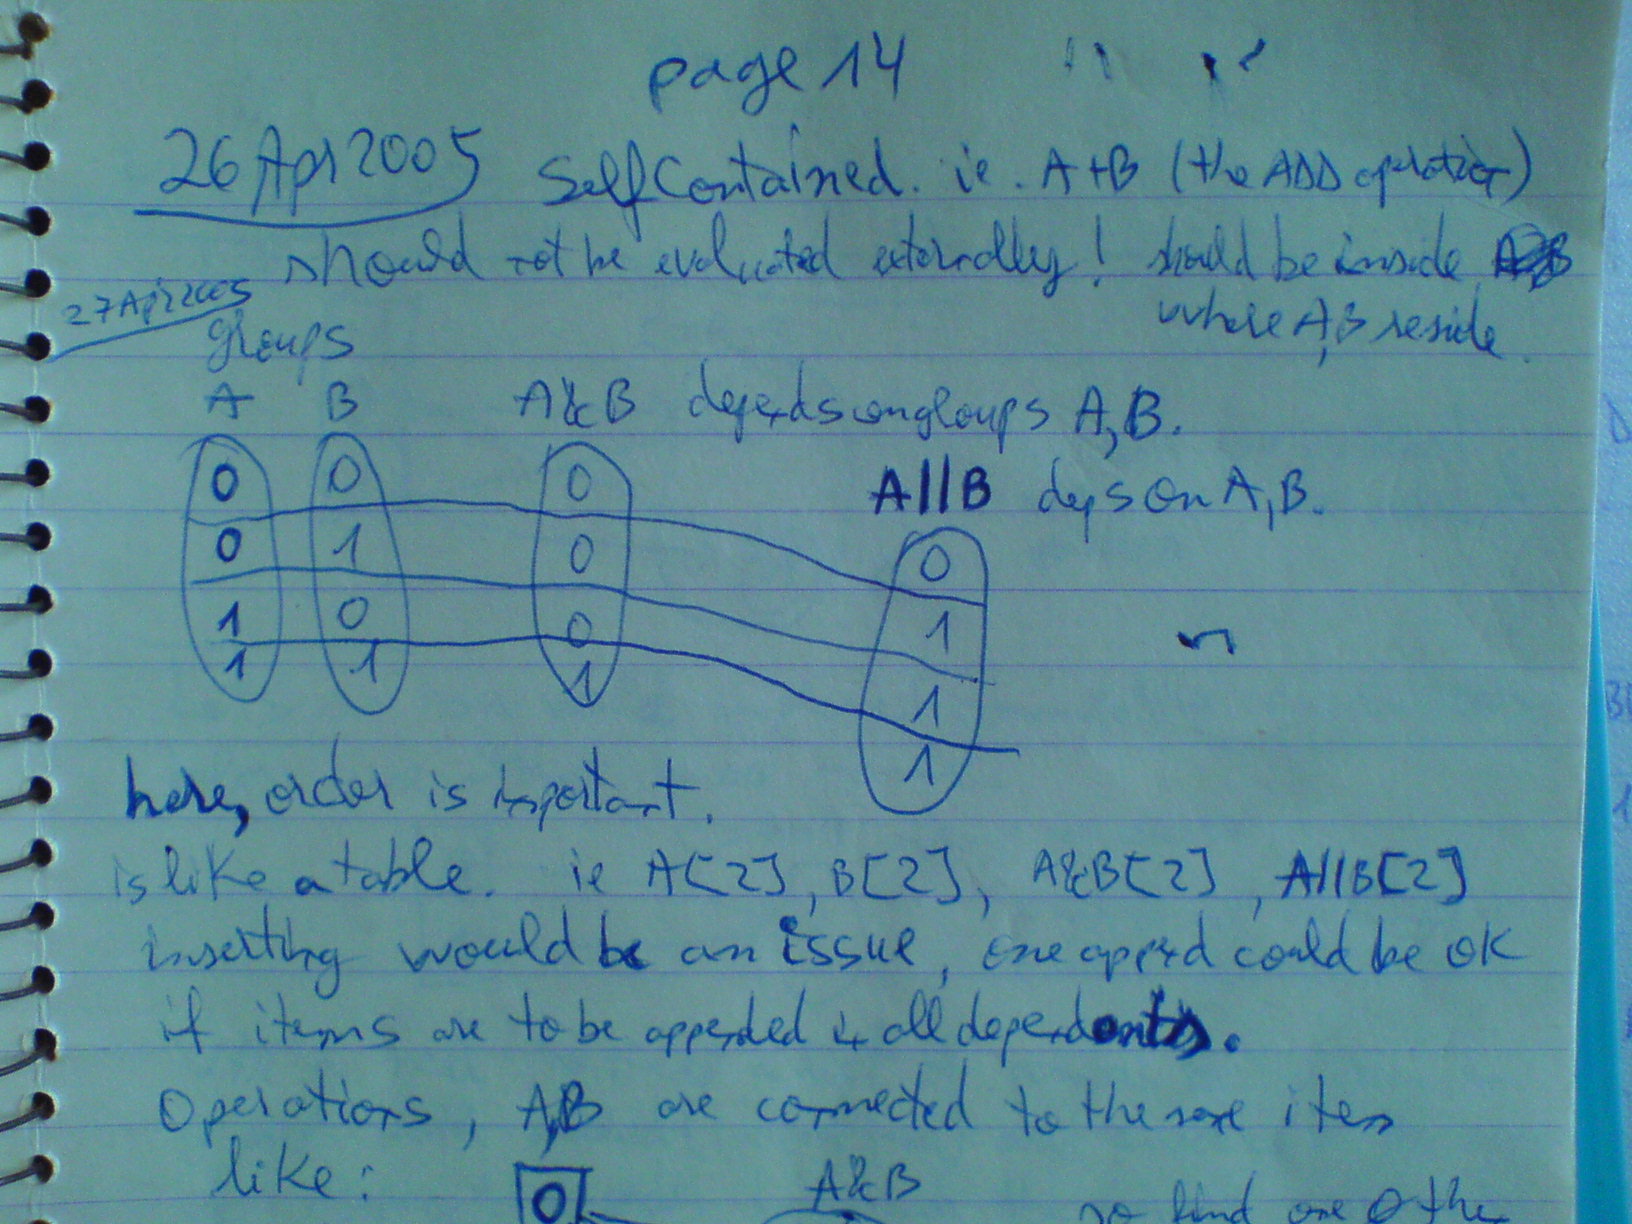 page 14
26 Apr 2005 Self Contained. ie. A+B (the ADD operation)
should not be evaluated externally! should be inside
where A,B reside.
27 Apr 2005
groups
A B A&B depends on groups A,B.
0 0 0 A||B deps on A,B.
0 1 0 0
1 0 0 1
1 1 1 1
1
here, order is important.
is like a table. ie A[2], B[2], A&B[2], A||B[2]
inserting would be an issue, one append could be ok
if items are to be appended in all dependents.
Operations, A,B are connected to the same item
like: 0 A&B
so kind one 0 the